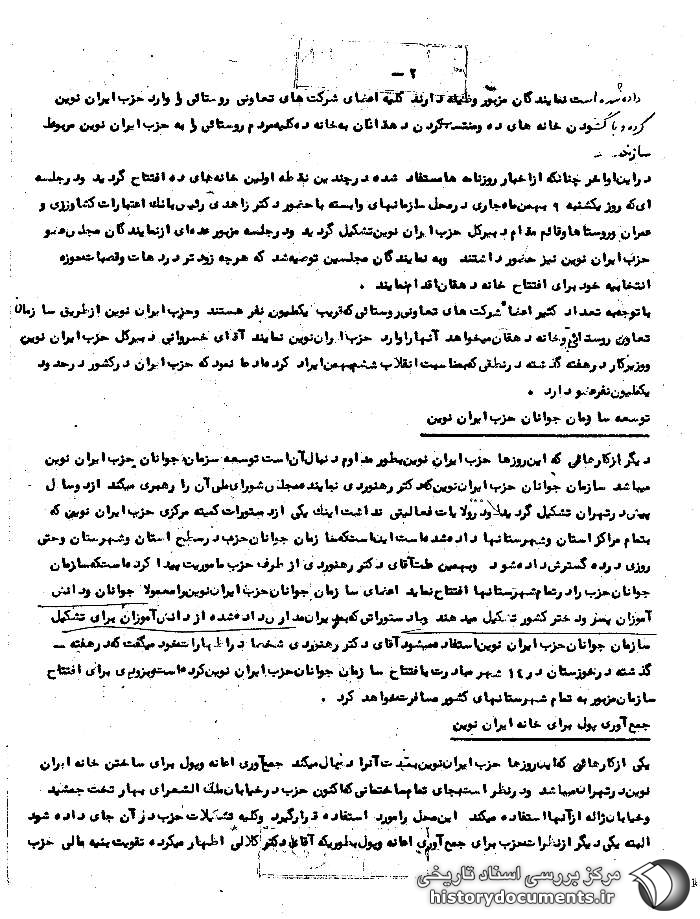 - ۲ -
داده شده است نمایندگان مزبور وظیفه دارند کلیه اعضای شرکت های تعاونی روستائی را وارد حزب ایران نوین
کرده و با گشودن خانه های ده و منتسب کردن دهقانان به خانه ده کلیه مردم روستائی را به حزب ایران نوین مربوط
سازند.
در این اواخر چنانکه از اخبار روزنامه ها مستفاد شده در چندین نقطه اولین خانه های ده افتتاح گردید و در جلسه
ای که روز یکشنبه ۹ بهمن ماه جاری در محل سازمانهای وابسته با حضور دکتر زاهدی رئیس بانک اعتبارات کشاورزی و
عمران روستاها و قائم مقام دبیر کل حزب ایران نوین تشکیل گردید و در جلسه مزبور عده ای از نمایندگان مجلس عضو
حزب ایران نوین نیز حضور داشتند و به نمایندگان مجلسین توصیه شد که هرچه زودتر در دهات و قصبات حوزه
انتخابیه خود برای افتتاح خانه دهقان اقدام نمایند .
با توجه به تعداد کثیر اعضاء شرکت های تعاونی روستائی که قریب یک ملیون نفر هستند و حزب ایران نوین از طریق سازمان
تعاون روستائی و خانه دهقان میخواهد آنها را وارد حزب ایران نوین نمایند آقای خسروانی دبیر کل حزب ایران نوین
و وزیر کار در هفته گذشته در نطقی که بمناسبت انقلاب ششم بهمن ایراد کرد ادعا نمود که حزب ایران در کشور در حدود
یک ملیون نفر عضو دارد .
توسعه سازمان جوانان حزب ایران نوین
دیگر از کارهائی که این روزها حزب ایران نوین بطور مداوم دنبال آن است توسعه سازمان جوانان حزب ایران نوین
میباشد سازمان جوانان حزب ایران نوین که دکتر رهنوردی نماینده مجلس شورای ملی آن را رهبری میکند از دو سال
پیش در تهران تشکیل گردید و در ولایات فعالیتی نداشت اینک یکی از دستورات کمیته مرکزی حزب ایران نوین که
بتمام مراکز استان و شهرستانها داده شده است این است که سازمان جوانان حزب در سطح استان و شهرستان و حتی
روزی در ده گسترش داده شود و بهمین علت آقای دکتر رهنوردی از طرف حزب ماموریت پیدا کرده است که سازمان
جوانان حزب را در تمام شهرستانها افتتاح نماید اعضای سازمان جوانان حزب ایران نوین را معمولا جوانان و دانش
آموزان پسر و دختر کشور تشکیل میدهند و با دستوراتی که بمدیران مدارس داده شده از دانش آموزان برای تشکیل
سازمان جوانان حزب ایران نوین استفاده میشود آقای دکتر رهنوردی شخصا در اظهارات خود میگفت که در هفته -
گذشته در خوزستان در ۱۴ شهر مبادرت بافتتاح سازمان جوانان حزب ایران نوین کرده است و بزودی برای افتتاح
سازمان مزبور به تمام شهرستانهای کشور مسافرت خواهد کرد .
جمع آوری پول برای خانه ایران نوین
یکی از کارهائی که این روزها حزب ایران نوین بشدت آنرا دنبال میکند جمع آوری اعانه و پول برای ساختن خانه ایران
نوین در تهران میباشد و در نظر است بجای تمام ساختمانی که اکنون حزب در خیابان ملک الشعرای بهار تخت جمشید
و خیابان ژاله از آنها استفاده میکند این محل را مورد استفاده قرار گیرد و کلیه تشکیلات حزب در آن جای داده شود
البته یکی دیگر از نظرات حزب برای جمع آوری اعانه و پول بطوریکه آقای دکتر کلالی اظهار میکرده تقویت بنیه مالی حزب
مرکز بررسی اسناد تاریخی
historydocuments.ir